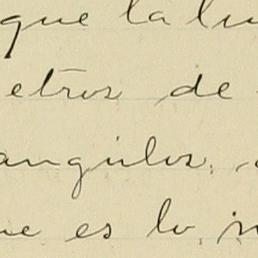 que la lu
etros de
angulos,
ue es lo